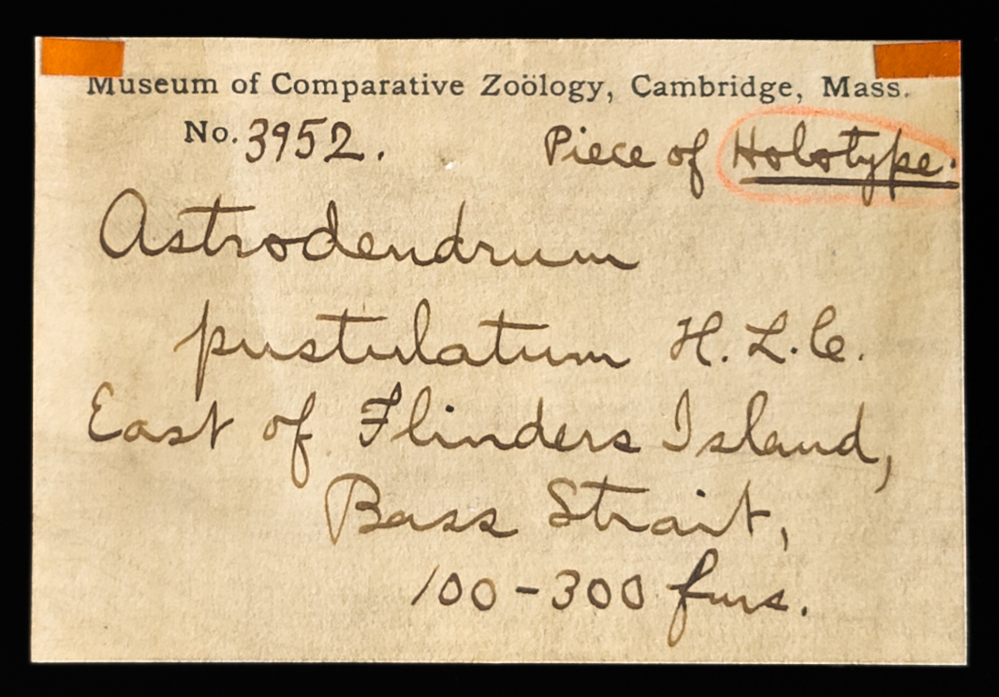 Museum of Comparative Zoölogy, Cambridge, Mass.
No. 3952. Piece of Holotype.
Astrodendrum
pustulatum H. L. C.
East of Flinders Island,
Bass Strait,
100-300 fms.